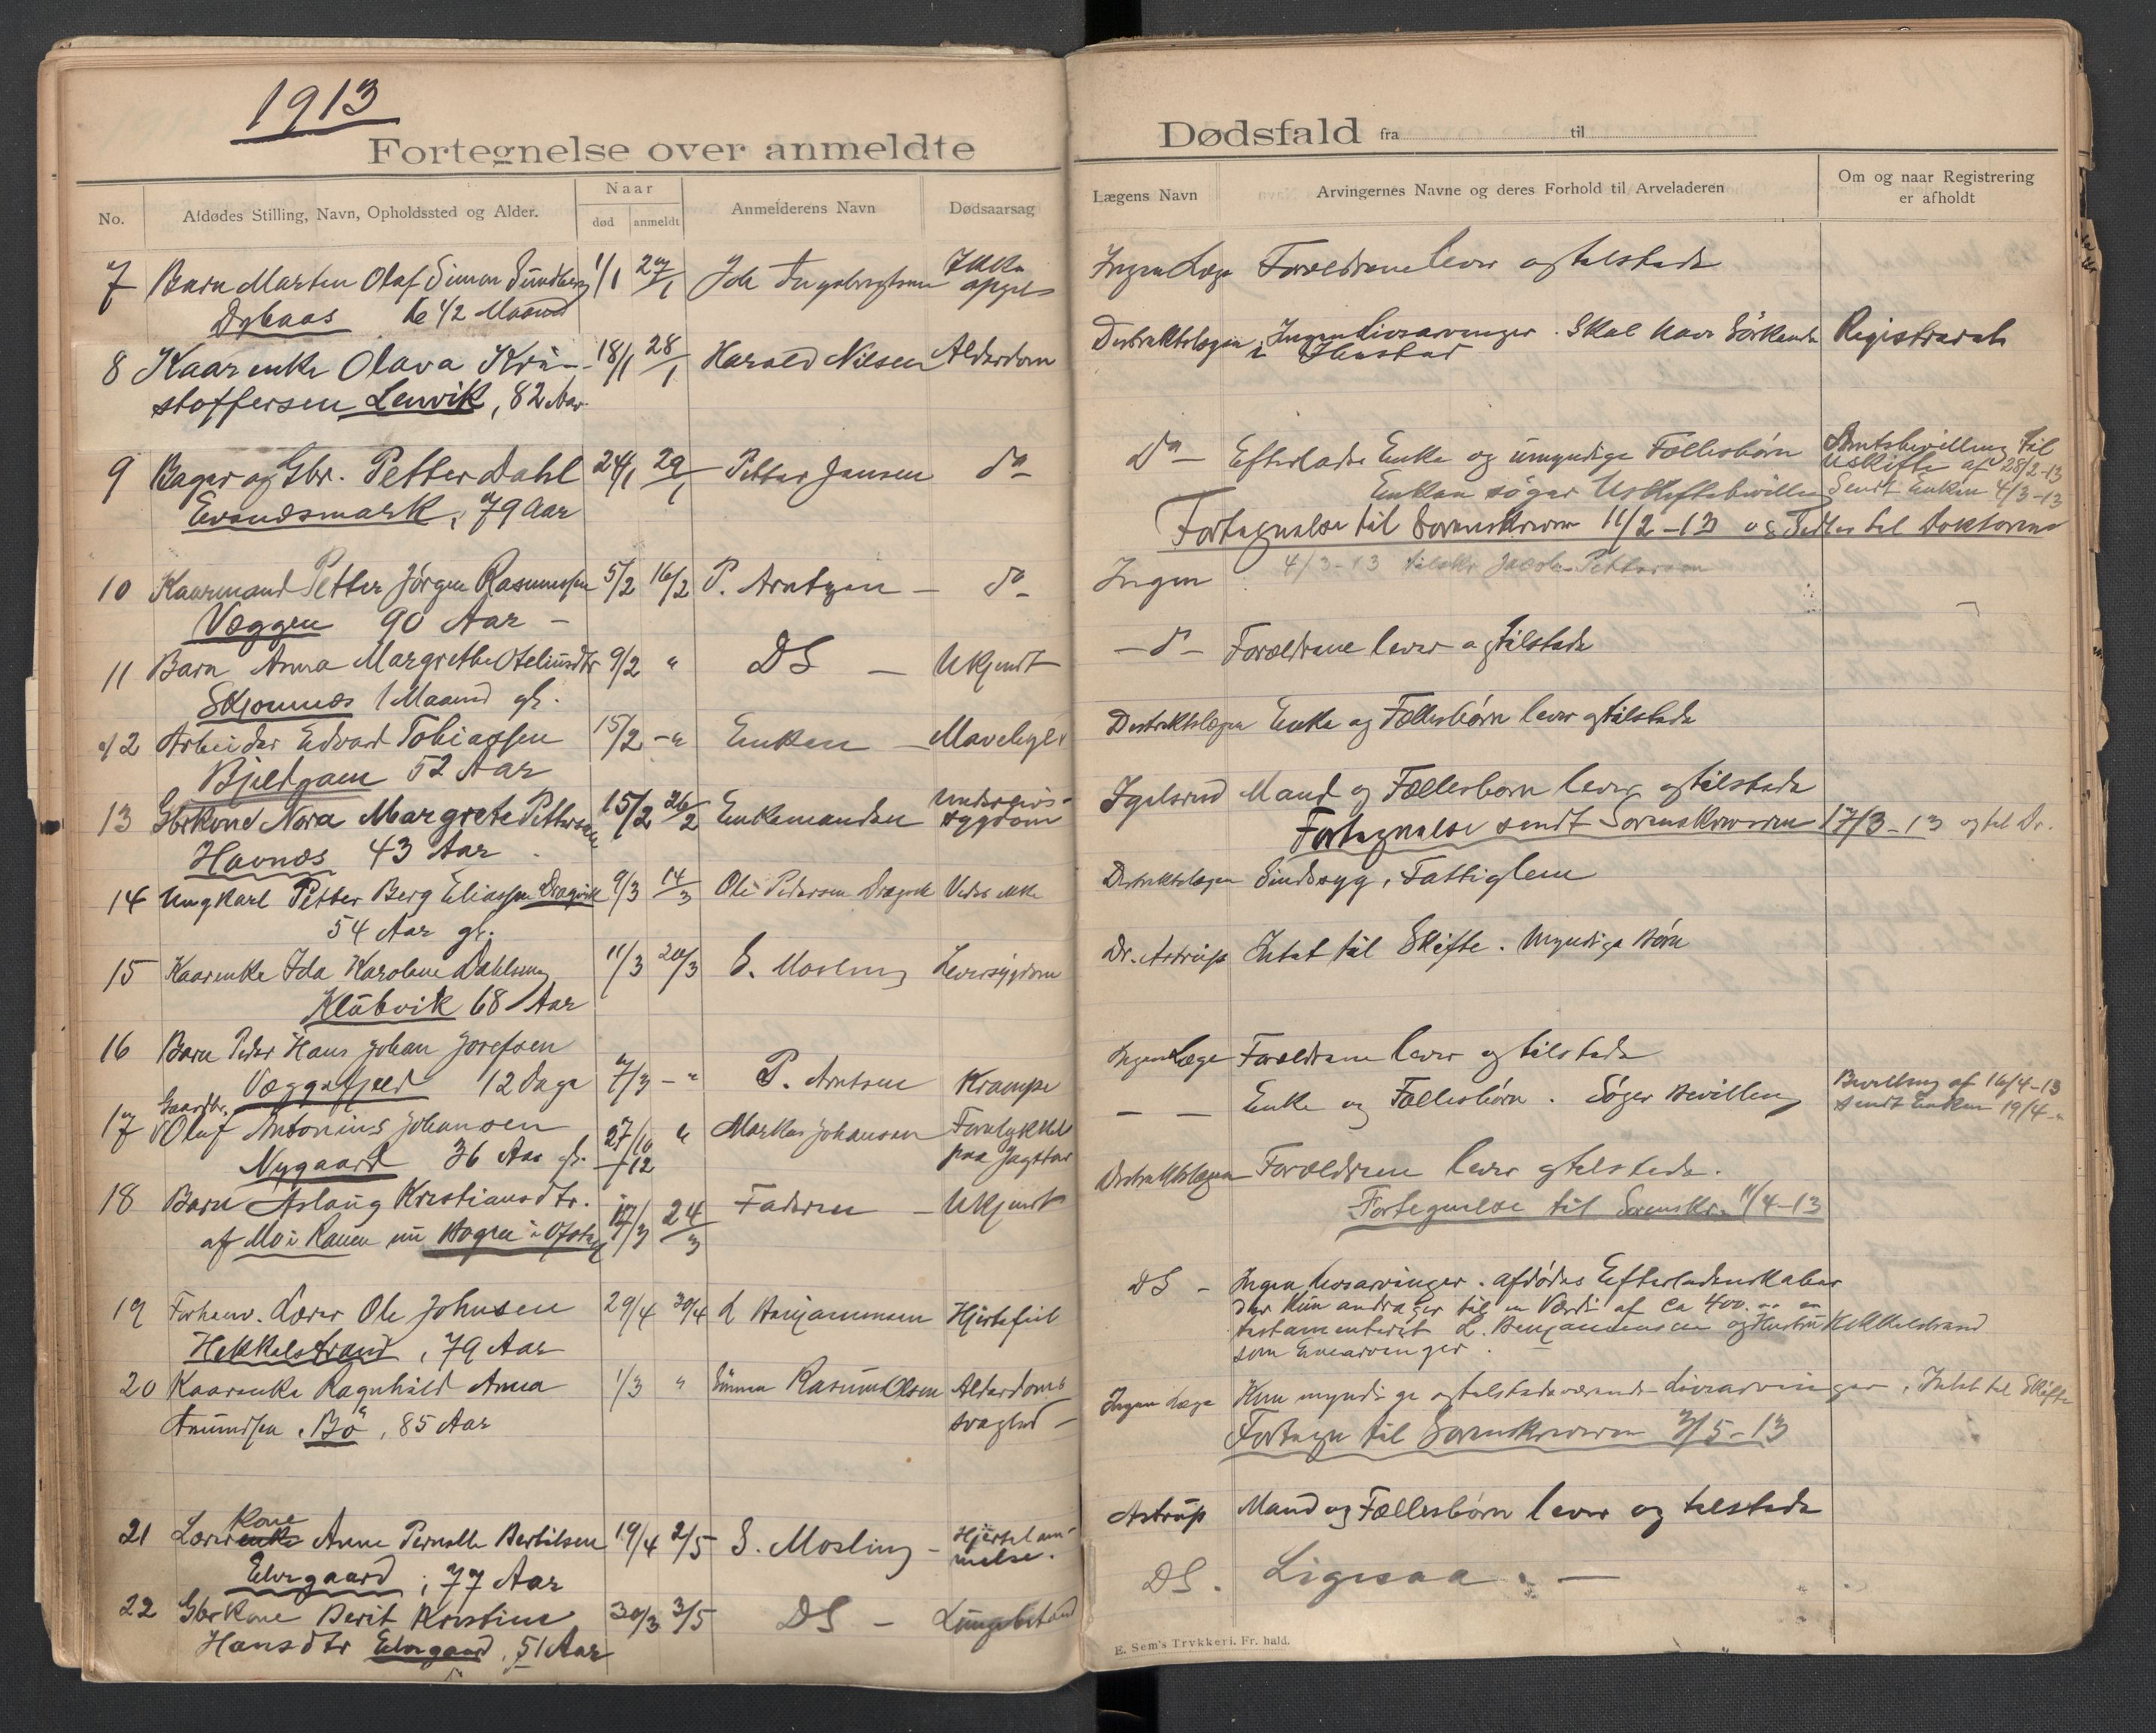 1913
Fortegnelse over anmeldte
No.
Afdødes Stilling, Navn, Opholdssted og Alder.
Naar
død
anmeldt
Anmelderens Navn
Dødsaarsag
7 Barn Marten Olaf Simon Sundberg 1/1 27/1
Dybaas 1/2 Maaned
8 Kaarenke Olava Kri- 18/1 28/1 Harald Nilsen Alderdom
stoffersen Lenvik, 82 Aar.
9 Bager og Gbr. Petter Dahl 24/1 29/1 Petter Jensen do
Evenesmark, 79 Aar
10 Kaarmand Petter Jörgen Rasmussen 5/2 16/2 P. Arntzen - do
Væggen 90 Aar -
11 Barn Anna Margrethe 9/2 " DS - Ukjendt
1 Maaned gl.
12 Arbeider Edvard Tobiassen 15/2 - " Enken -
52 Aar
13 Gbrkone Nora Margrete Pettersen 15/2 26/2 Enkemanden Underlivs-
sygdom
Havnæs 43 Aar.
14 Ungkarl Petter Berg Eliassen Dragvik 9/3 14/3 Ole Pedersen Dragvik Vides ikke
54 Aar gl.
15 Kaarenke Ida Karoline 11/3 20/3 S. Mosling Leversygdom
Klubvik 68 Aar
16 Barn Peder Hans Johan Josefsen
Væggefjeld 12 Dage 7/3 - " P. Arntsen Krampe
Gaardbr.
17 Oluf Antonius Johansen 27/10 " Markus Johansen Forulykket
Nygaard 36 Aar gl. -12 paa
18 Barn Aslaug Kristiansdtr. 17/3 24/3 Faderen - Ukjendt
af Mo i Ranen nu Bogen i Ofoten
19 Forhenv. Lærer Ole Johnsen 29/4 30/4 L Benjaminsen Hjertefeil
Hekkelstrand, 79 Aar
20 Kaarenke Ragnhild Anna 1/3 " Olsen Alderdoms
Amundsen. Bö, 85 Aar svaghed -
Kone
21 Lærerenke Anne Pernelle Bertilsen 19/4 2/5 S. Mosling - Hjertelam-
melse.
Elvegaard, 77 Aar
22 Gbrkone Berit Kristine 30/3 3/5 DS -
Hansdtr Elvegaard, 51 Aar
Dødsfald fra til
Lægens Navn
Arvingernes Navne og deres Forhold til Arveladeren
Om og naar Registrering
er afholdt
Ingen Læge Forældrene lever og tilstede
Distriktslægen Ingen Livsarvinger. Skal have Sörkende Registreret
i
do - Efterlader Enke og umyndige Fællesbörn Amtsbevilling til
Uskifte af 28/2-13
Enken söger Uskiftebevilling Sendt Enken 4/3-13
Fortegnelse til Sorenskriveren 11/2-13 og Sedler til Doktoren
Ingen 4/3-13 tilskr. Jacob Pettersen
- do - Forældrene lever og tilstede
Distriktslægen Enke og Fællesbörn lever og tilstede
Igelsrud Mand og Fællesborn lever og tilstede
Fortegnelse sendt Sorenskriveren 17/3-13 og til Dr.
Distriktslægen Sindssyg, Fattiglem
Dr. Astrup Intet til Skifte. Myndige Börn
Ingen Læge Forældrene lever og tilstede
- - Enke og Fællesbörn. Söger Bevilling Bevilling af 16/4-13
sendt Enken 19/4-"
Distriktslægen Forældrene lever og tilstede.
Fortegnelse til Sorenskr. 11/4-13
DS - Ingen Livsarvinger. afdödes Efterladenskaber
der kun andrager til en Værdi af ca 400. er
testamenteret L. Benjaminsen og Hustru Hekkelstrand
som Enearvinger.
Ingen Læge Kun myndige og tilstedeværende Livsarvinger. Intet til Skifte
Fortegn til Sorenskriveren 3/5-13
Astrup Mand og Fællesbörn lever og tilstede
DS. Ligesaa. -
E. Sem's Trykkeri. Fr. hald.